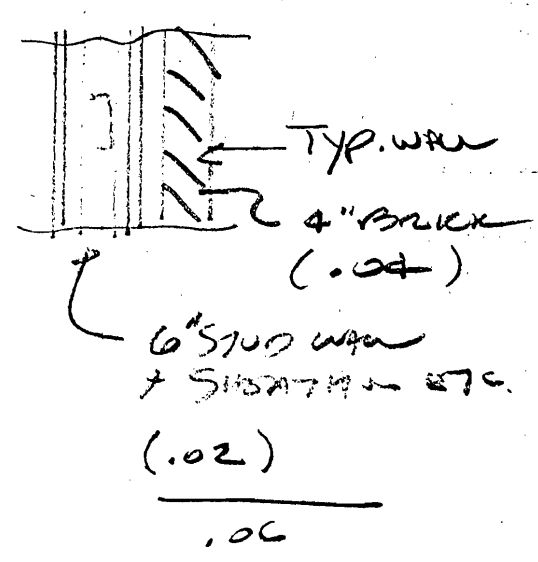 TYP. WALL
4" BRICK
(.04)
6" STUD WALL
+ SHEATHING ETC.
(.02)
.06